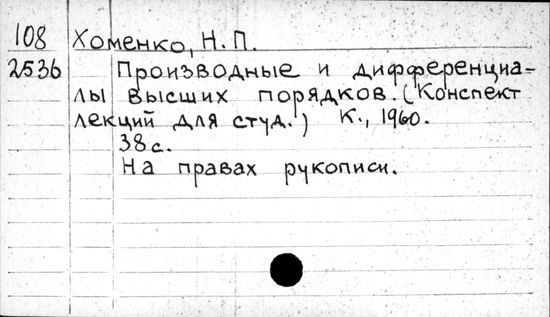 108 Хоменко, Н. П.
2536 Производные и дифференциа-
лы высших порядков. (Конспект
лекций для студ.) К., 1960.
38 с.
На правах рукописи.